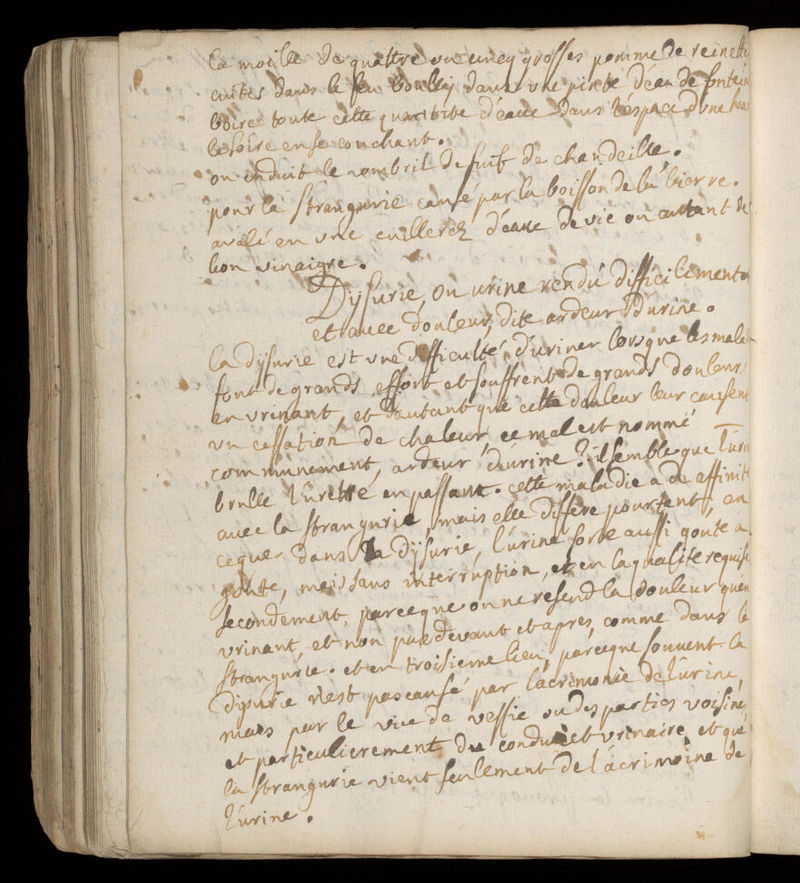 La moille de quattre ou cincq grosses pomme de reinette
cuites dans le feu boulléz dans une pinte d'eau de fontein
boire toute cette quantité d'eaue dans l'espace d'une heure
le soire en se couchant.
on enduit le nombril de suif de chandeille.
pour la strangurie causé par la boisson de la bierre.
avalé en une cuillerez d'eaue de vie ou autant de
bon vinaigre.
Dysurie, ou urine rendu difficilement
et avec douleur dite ardeur d'urine.
La dysurie est une difficulté d'uriner lorsque les mala
font de grands effort et souffrent de grands douleur
en urinant, et d'autant que cette douleur leur causent
un cessation de chaleur ce mal est nommé
communement, ardeur d'urine il semble que l'uri
brulle l'urettre en passant. cette maladie a de affinit
avec la strangurie, mais elle differe pourtant, en
ceque dans la dysurie, l'urine sorte aussi goute a
goute, mais sans interruption, et en la qualite requise
secondement, parceque on ne resend la douleur quen
urinant, et non pas devant et apres, comme dans la
strangurie. et en troisieme lieu, parceque souvent la
disurie n'est pas causé par l'acrimonie de l'urine,
mais par le vice de vessie ou des parties voisines,
et particulierement du conduict urinaire, et que
la strangurie vient seulement de l'acrimoine de
l'urine.